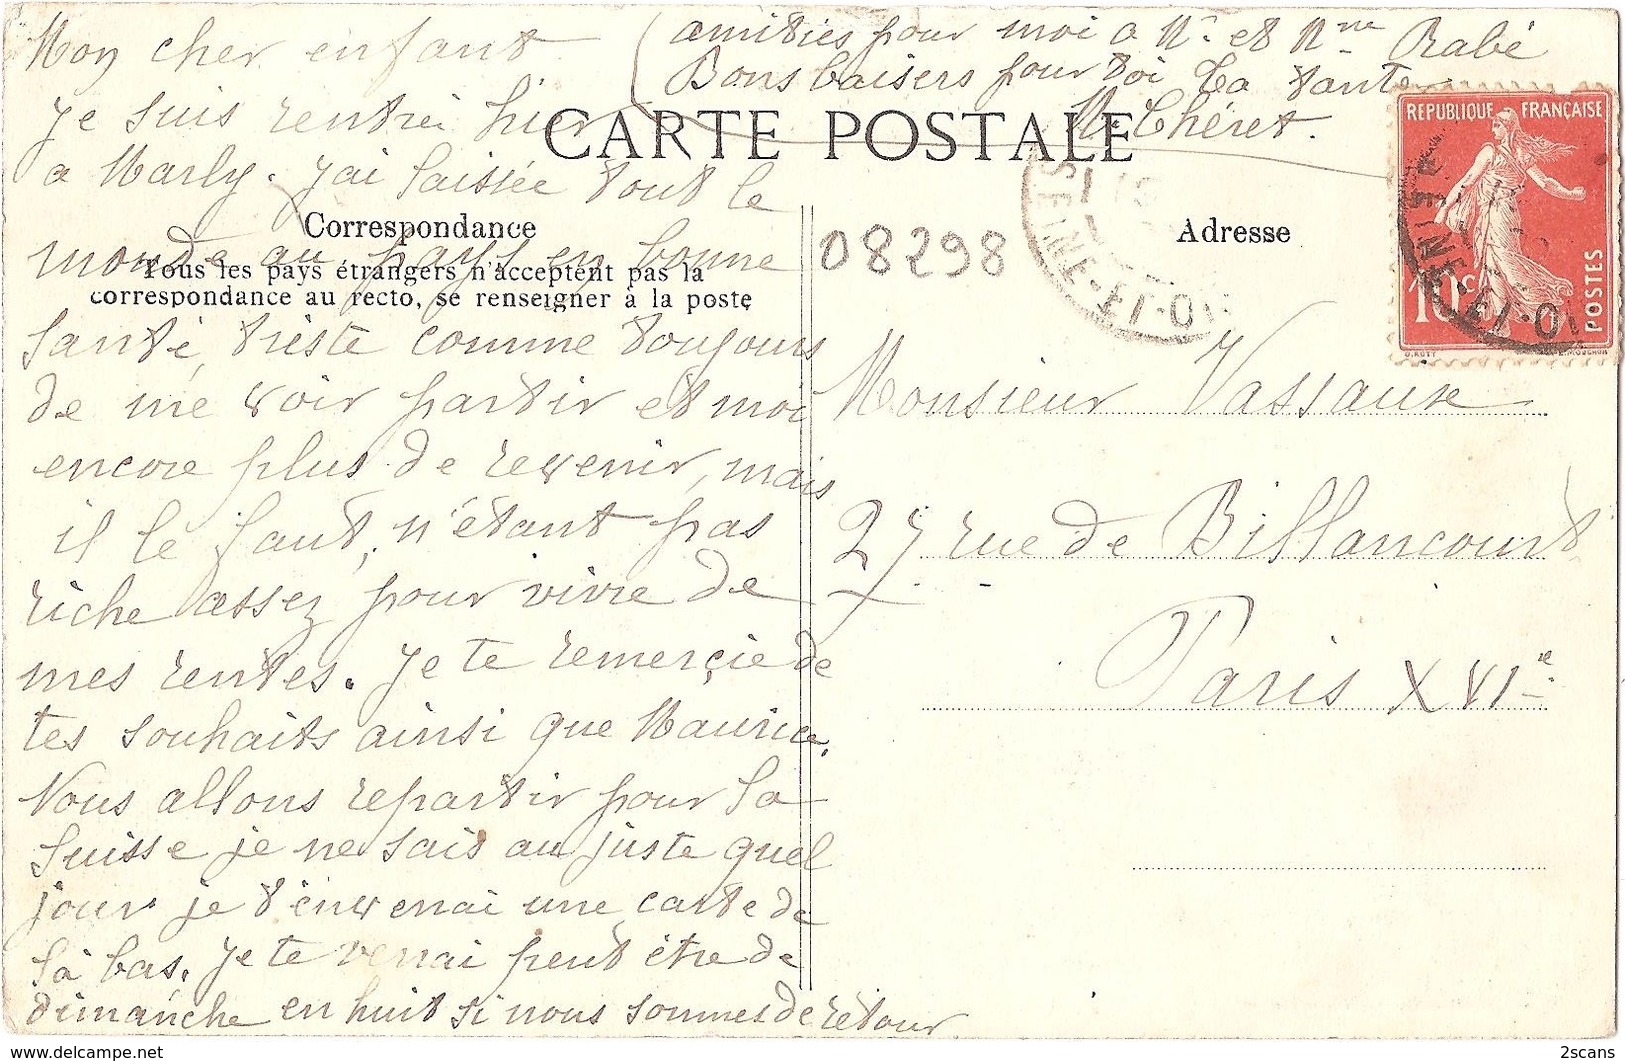 Mon cher enfant
Je suis rentrée hier
a Marly. J'ai laissée tout le
monde au pays en bonne
santé, triste comme toujours
de me voir partir et moi
encore plus de revenir, mais
il le faut, n'étant pas
riche assez pour vivre de
mes rentes. Je te remerçie de
tes souhaits ainsi que Maurice.
Nous allons repartir pour la
Suisse je ne sais au juste quel
jour je t'enverrai une carte de
là bas. Je te verrai peut être de
dimanche en huit si nous sommes de retour
amitiés pour moi a Mr. et Mme Rabé
Bons baisers pour toi La tante
M. Chéret.
CARTE POSTALE
Correspondance
Tous les pays étrangers n'acceptent pas la
correspondance au recto, se renseigner à la poste
08298
Adresse
REPUBLIQUE FRANÇAISE
10c
POSTES
O. ROTY
E. MOUCHON
SEINE-ET-OI
SEINE-ET-OI
Monsieur Vassaux
27 rue de Billancourt
Paris XVIe
2scans